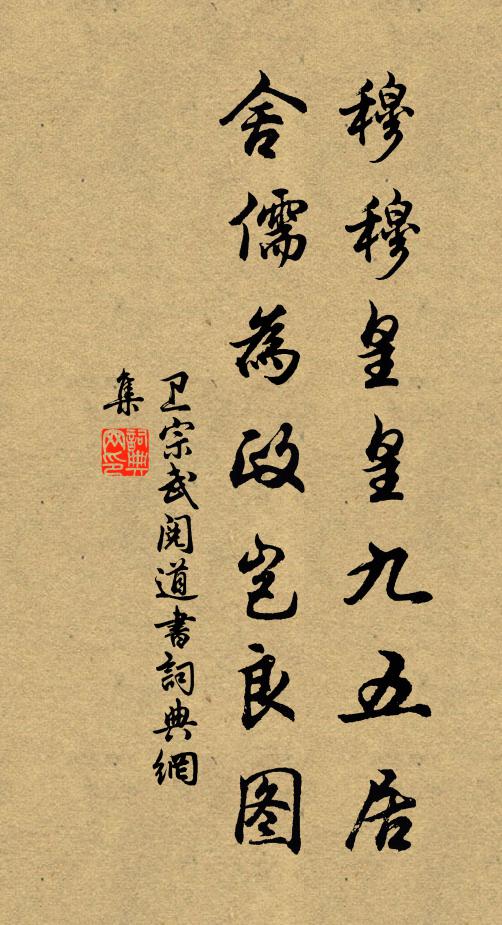 穆穆皇皇九五居
舍儒為政岂良图
卫宗武阅道書詞典網
集
詞典
网印